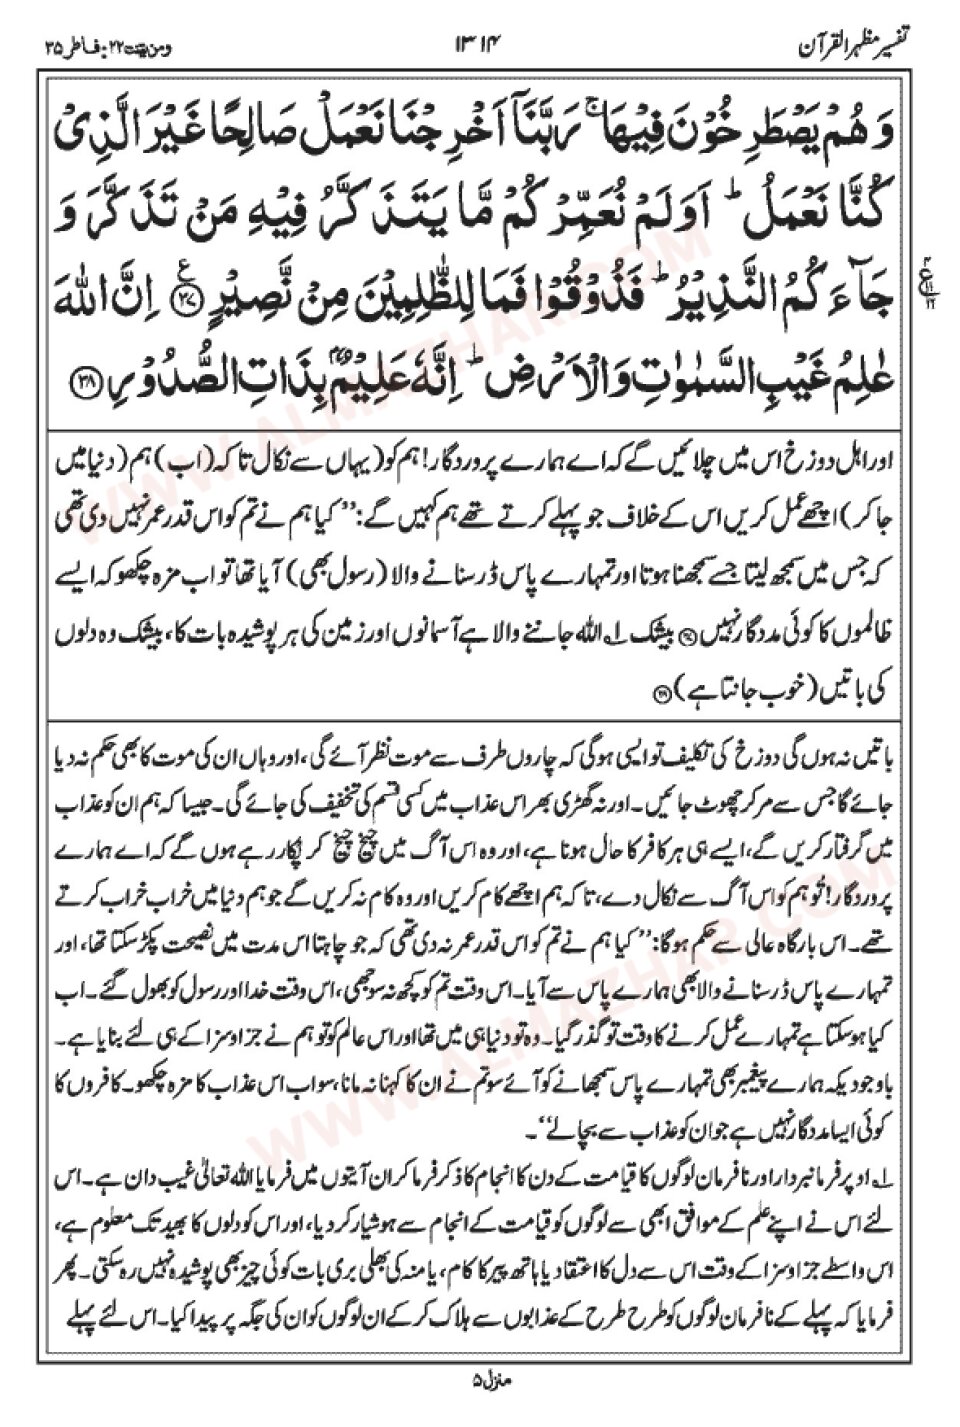 تفسیر مظہر القرآن ۱۳۱۴ ومن یقنت ۲۲: فاطر ۳۵
وَهُمْ يَصْطَرِخُوْنَ فِيْهَا ۚ رَبَّنَآ اَخْرِجْنَا نَعْمَلْ صَالِحًا غَيْرَ الَّذِىْ
كُنَّا نَعْمَلُ ؕ اَوَلَمْ نُعَمِّرْكُمْ مَّا يَتَذَكَّرُ فِيْهِ مَنْ تَذَكَّرَ وَ
جَآءَكُمُ النَّذِيْرُ ؕ فَذُوْقُوْا فَمَا لِلظّٰلِمِيْنَ مِنْ نَّصِيْرٍ ﴿۳۷﴾ اِنَّ اللّٰهَ
عٰلِمُ غَيْبِ السَّمٰوٰتِ وَالْاَرْضِ ؕ اِنَّهٗ عَلِيْمٌۢ بِذَاتِ الصُّدُوْرِ ﴿۳۸﴾
اور اہل دوزخ اس میں چلائیں گے کہ اے ہمارے پروردگار! ہم کو (یہاں سے نکال تاکہ (اب) ہم (دنیا میں
جاکر) اچھے عمل کریں اس کے خلاف جو پہلے کرتے تھے ہم کہیں گے: ’’کیا ہم نے تم کو اس قدر عمر نہیں دی تھی
کہ جس میں سمجھ لیتا جسے سمجھنا ہوتا اور تمہارے پاس ڈر سنانے والا (رسول بھی) آیا تھا تو اب مزہ چکھو کہ ایسے
ظالموں کا کوئی مددگار نہیں ﴿۳۷﴾ بیشک ۱؎ اللہ جاننے والا ہے آسمانوں اور زمین کی ہر پوشیدہ بات کا، بیشک وہ دلوں
کی باتیں (خوب جانتا ہے) ﴿۳۸﴾
باتیں نہ ہوں گی دوزخ کی تکلیف تو ایسی ہوگی کہ چاروں طرف سے موت نظر آئے گی، اور وہاں ان کی موت کا بھی حکم نہ دیا
جائے گا جس سے مرکر چھوٹ جائیں۔ اور نہ گھڑی بھر اس عذاب میں کسی قسم کی تخفیف کی جائے گی۔ جیسا کہ ہم ان کو عذاب
میں گرفتار کریں گے، ایسے ہی ہر کافر کا حال ہونا ہے، اور وہ اس آگ میں چیخ چیخ کر پکار رہے ہوں گے کہ اے ہمارے
پروردگار! تُو ہم کو اس آگ سے نکال دے، تاکہ ہم اچھے کام کریں اور وہ کام نہ کریں گے جو ہم دنیا میں خراب خراب کرتے
تھے۔ اس بارگاہ عالی سے حکم ہوگا: ’’کیا ہم نے تم کو اس قدر عمر نہ دی تھی کہ جو چاہتا اس مدت میں نصیحت پکڑ سکتا تھا، اور
تمہارے پاس ڈر سنانے والا بھی ہمارے پاس سے آیا۔ اس وقت تم کو کچھ نہ سوجھی، اس وقت خدا اور رسول کو بھول گئے۔ اب
کیا ہو سکتا ہے تمہارے عمل کرنے کا وقت تو گذر گیا۔ وہ تو دنیا ہی میں تھا اور اس عالم کو تو ہم نے جزا و سزا کے ہی لئے بنایا ہے۔
باوجود یکہ ہمارے پیغمبر بھی تمہارے پاس سمجھانے کو آئے سو تم نے ان کا کہنا نہ مانا، سو اب اس عذاب کا مزہ چکھو۔ کافروں کا
کوئی ایسا مددگار نہیں ہے جو ان کو عذاب سے بچالے‘‘۔
۱؎ اوپر فرمانبردار اور نافرمان لوگوں کا قیامت کے دن کا انجام کا ذکر فرما کر ان آیتوں میں فرمایا اللہ تعالیٰ غیب دان ہے۔ اس
لئے اس نے اپنے علم کے موافق ابھی سے لوگوں کو قیامت کے انجام سے ہوشیار کر دیا، اور اس کو دلوں کا بھید تک معلوم ہے،
اس واسطے جزا و سزا کے وقت اس سے دل کا اعتقاد یا ہاتھ پیر کا کام، یا منہ کی بھلی بری بات کوئی چیز بھی پوشیدہ نہیں رہ سکتی۔ پھر
فرمایا کہ پہلے کے نافرمان لوگوں کو طرح طرح کے عذابوں سے ہلاک کر کے ان لوگوں کو ان کی جگہ پر پیدا کیا۔ اس لئے پہلے
منزل ۵
WWW.ALMAZHAR.COM
WWW.ALMAZHAR.COM